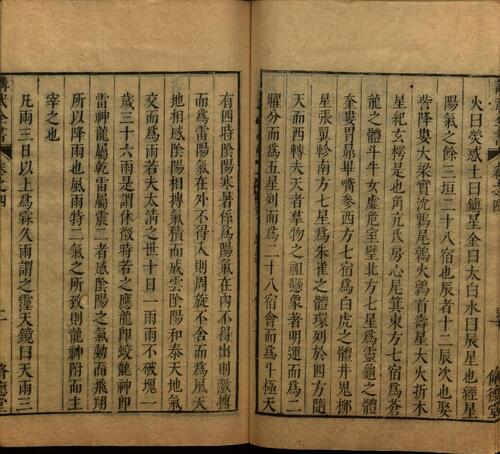 火曰熒惑土曰鎮星金曰太白水曰辰星也經星
陽氣之餘三垣二十八宿也辰者十二辰次也娶
訾降婁大梁實沈鶉尾鶉火鶉首壽星大火折木
星紀玄枵是也角亢氐房心尾箕東方七宿爲蒼
龍之體斗牛女虛危室壁北方七星爲靈龜之體
奎婁胃昴畢觜參西方七宿爲白虎之體井鬼柳
星張翼軫南方七星爲朱雀之體環列於四方隨
天而西轉夫天者羣物之祖懸象著明運而爲二
曜分而爲五星列而爲二十八宿會而爲斗極天
有四時陰陽寒暑係爲陽氣在內不得出則激搏
而爲雷陽氣在外不得入則周旋不舍而爲風天
地相感陰陽相摶氣積而成雲陰陽和泰天地氣
交而爲雨若夫太淸之世十日一雨雨不破塊一
歲三十六雨是謂休徵時若之應龍卽蛟龍神卽
雷神龍屬乾雷屬震二者感陰陽之氣動而飛翔
所以降雨也風雨特二氣之所致則龍神附而主
宰之也
凡雨三日以上爲霖久雨謂之霪天鏡曰天雨三
講武全書
卷之四
二
脩德堂